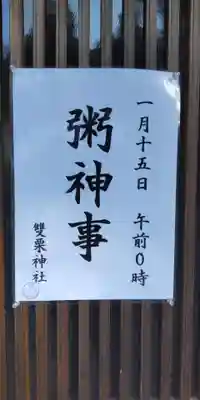 一月十五日 午前０時
粥神事
雙栗神社